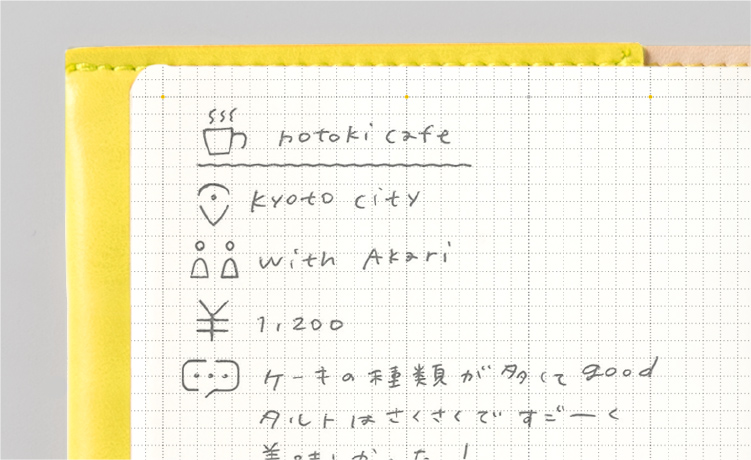 hotoki cafe
kyoto city
with Akari
¥ 1,200
ケーキの種類が多くて good
タルトはさくさくですごーく
美味しかった!